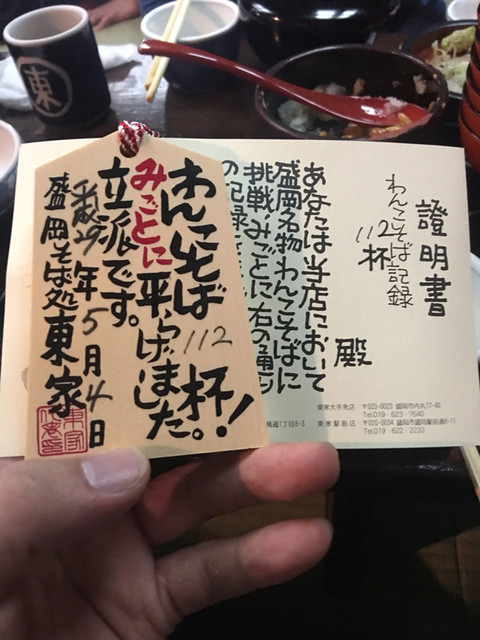 東
證明書
わんこそば記録
112杯
殿
あなたは当店において
盛岡名物わんこそばに
挑戦、みごとに右の通り
の記録
わんこそば112杯!
みごとに平らげました。
立派です。
平成29年5月4日
盛岡そば処東家
東家大手先店 〒020-0023 盛岡市内丸17-40
Tel.019・623・7540
東家駅前店 〒020-0034 盛岡市盛岡駅前通8-17
Tel.019・622・2233